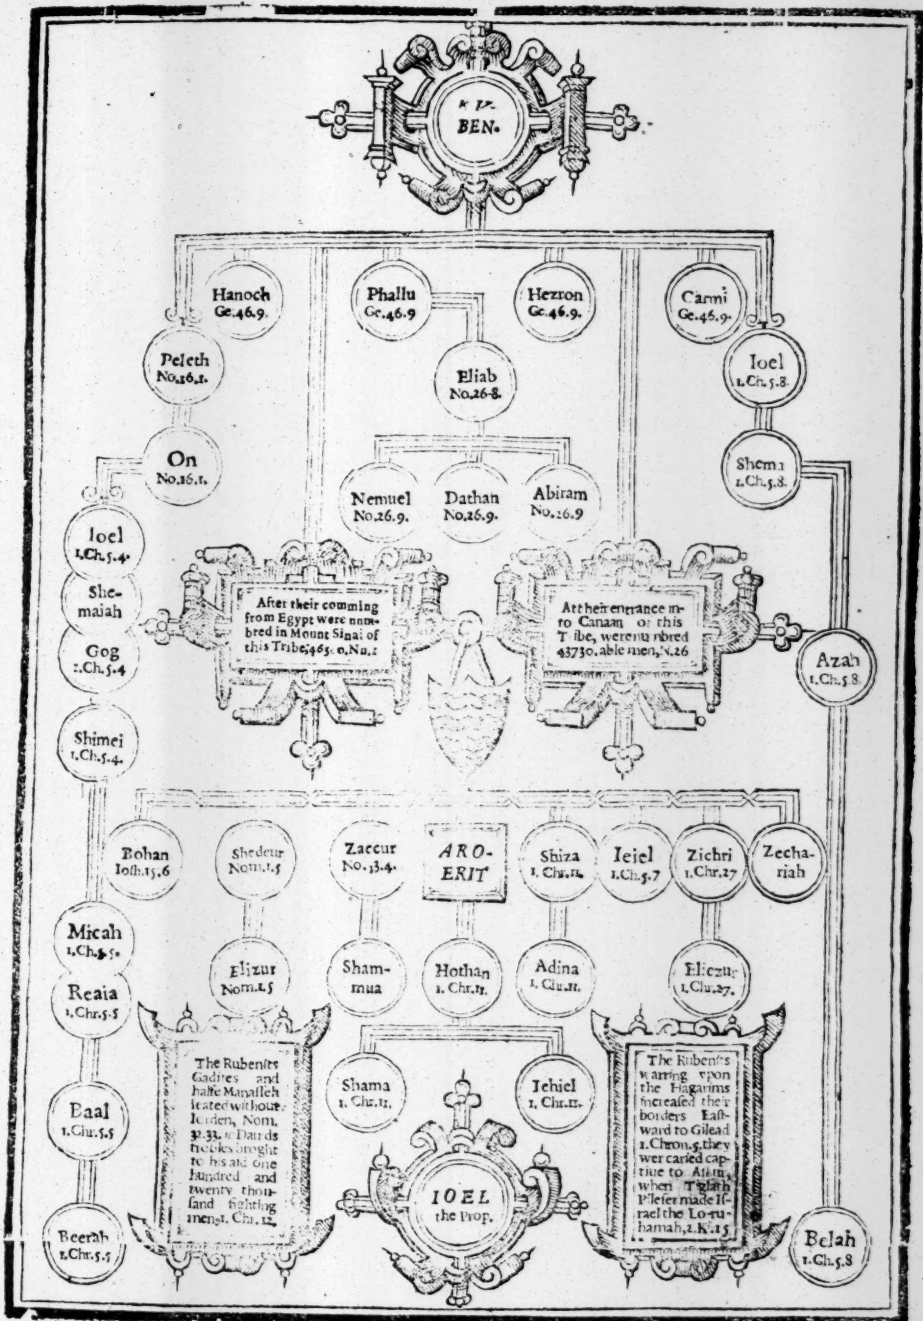 BEN.
Hanoch
Ge.46.9.
Phallu
Ge.46.9
Hezron
Ge.46.9.
Carmi
Ge.46.9.
Peleth
No.16.1.
Eliab
No.26.8.
Ioel
1.Ch.5.8.
On
No.16.1.
Nemuel
No.26.9.
Dathan
No.26.9.
Abiram
No.26.9
Shema
1.Ch.5.8.
Ioel
1.Ch.5.4.
She-
maiah
Gog
1.Ch.5.4
Shimei
1.Ch.5.4.
After their comming
from Egypt were num-
bred in Mount Sinai of
this Tribe,
At their entrance in-
to Canaan of this
Tribe, were numbred
43730. able men, N.26
Azah
1.Ch.5.8.
Bohan
Iosh.15.6
Shedeur
Nom.1.5
Zaccur
No.13.4.
ARO-
ERIT
Shiza
1.Chr.11.
Ieiel
1.Ch.5.7
Zichri
1.Chr.27
Zecha-
riah
Micah
1.Ch.5.5.
Reaia
1.Chr.5.5
Elizur
Nom.1.5
Sham-
mua
Hothan
1.Chr.11.
Adina
1.Chr.11.
Eliezur
1.Chr.27.
Baal
1.Chr.5.5
Beerah
1.Chr.5.5
The Rubenites
Gadites and
halfe Manasseh
seated without
Iorden, Nom.
32.33. Dauids
troubles broght
to his aid one
hundred and
twenty thou-
sand fighting
men, 1. Chr.12.
Shama
1.Chr.11.
Iehiel
1.Chr.11.
IOEL
the Prop.
The Rubenits
warring vpon
the Hagarims
increased their
borders East-
ward to Gilead
1.Chron.5. they
wer caried cap-
tiue to
when Tiglath
Pileser made Is-
rael the Lo-ru-
hamah, 2.K.15
Belah
1.Ch.5.8